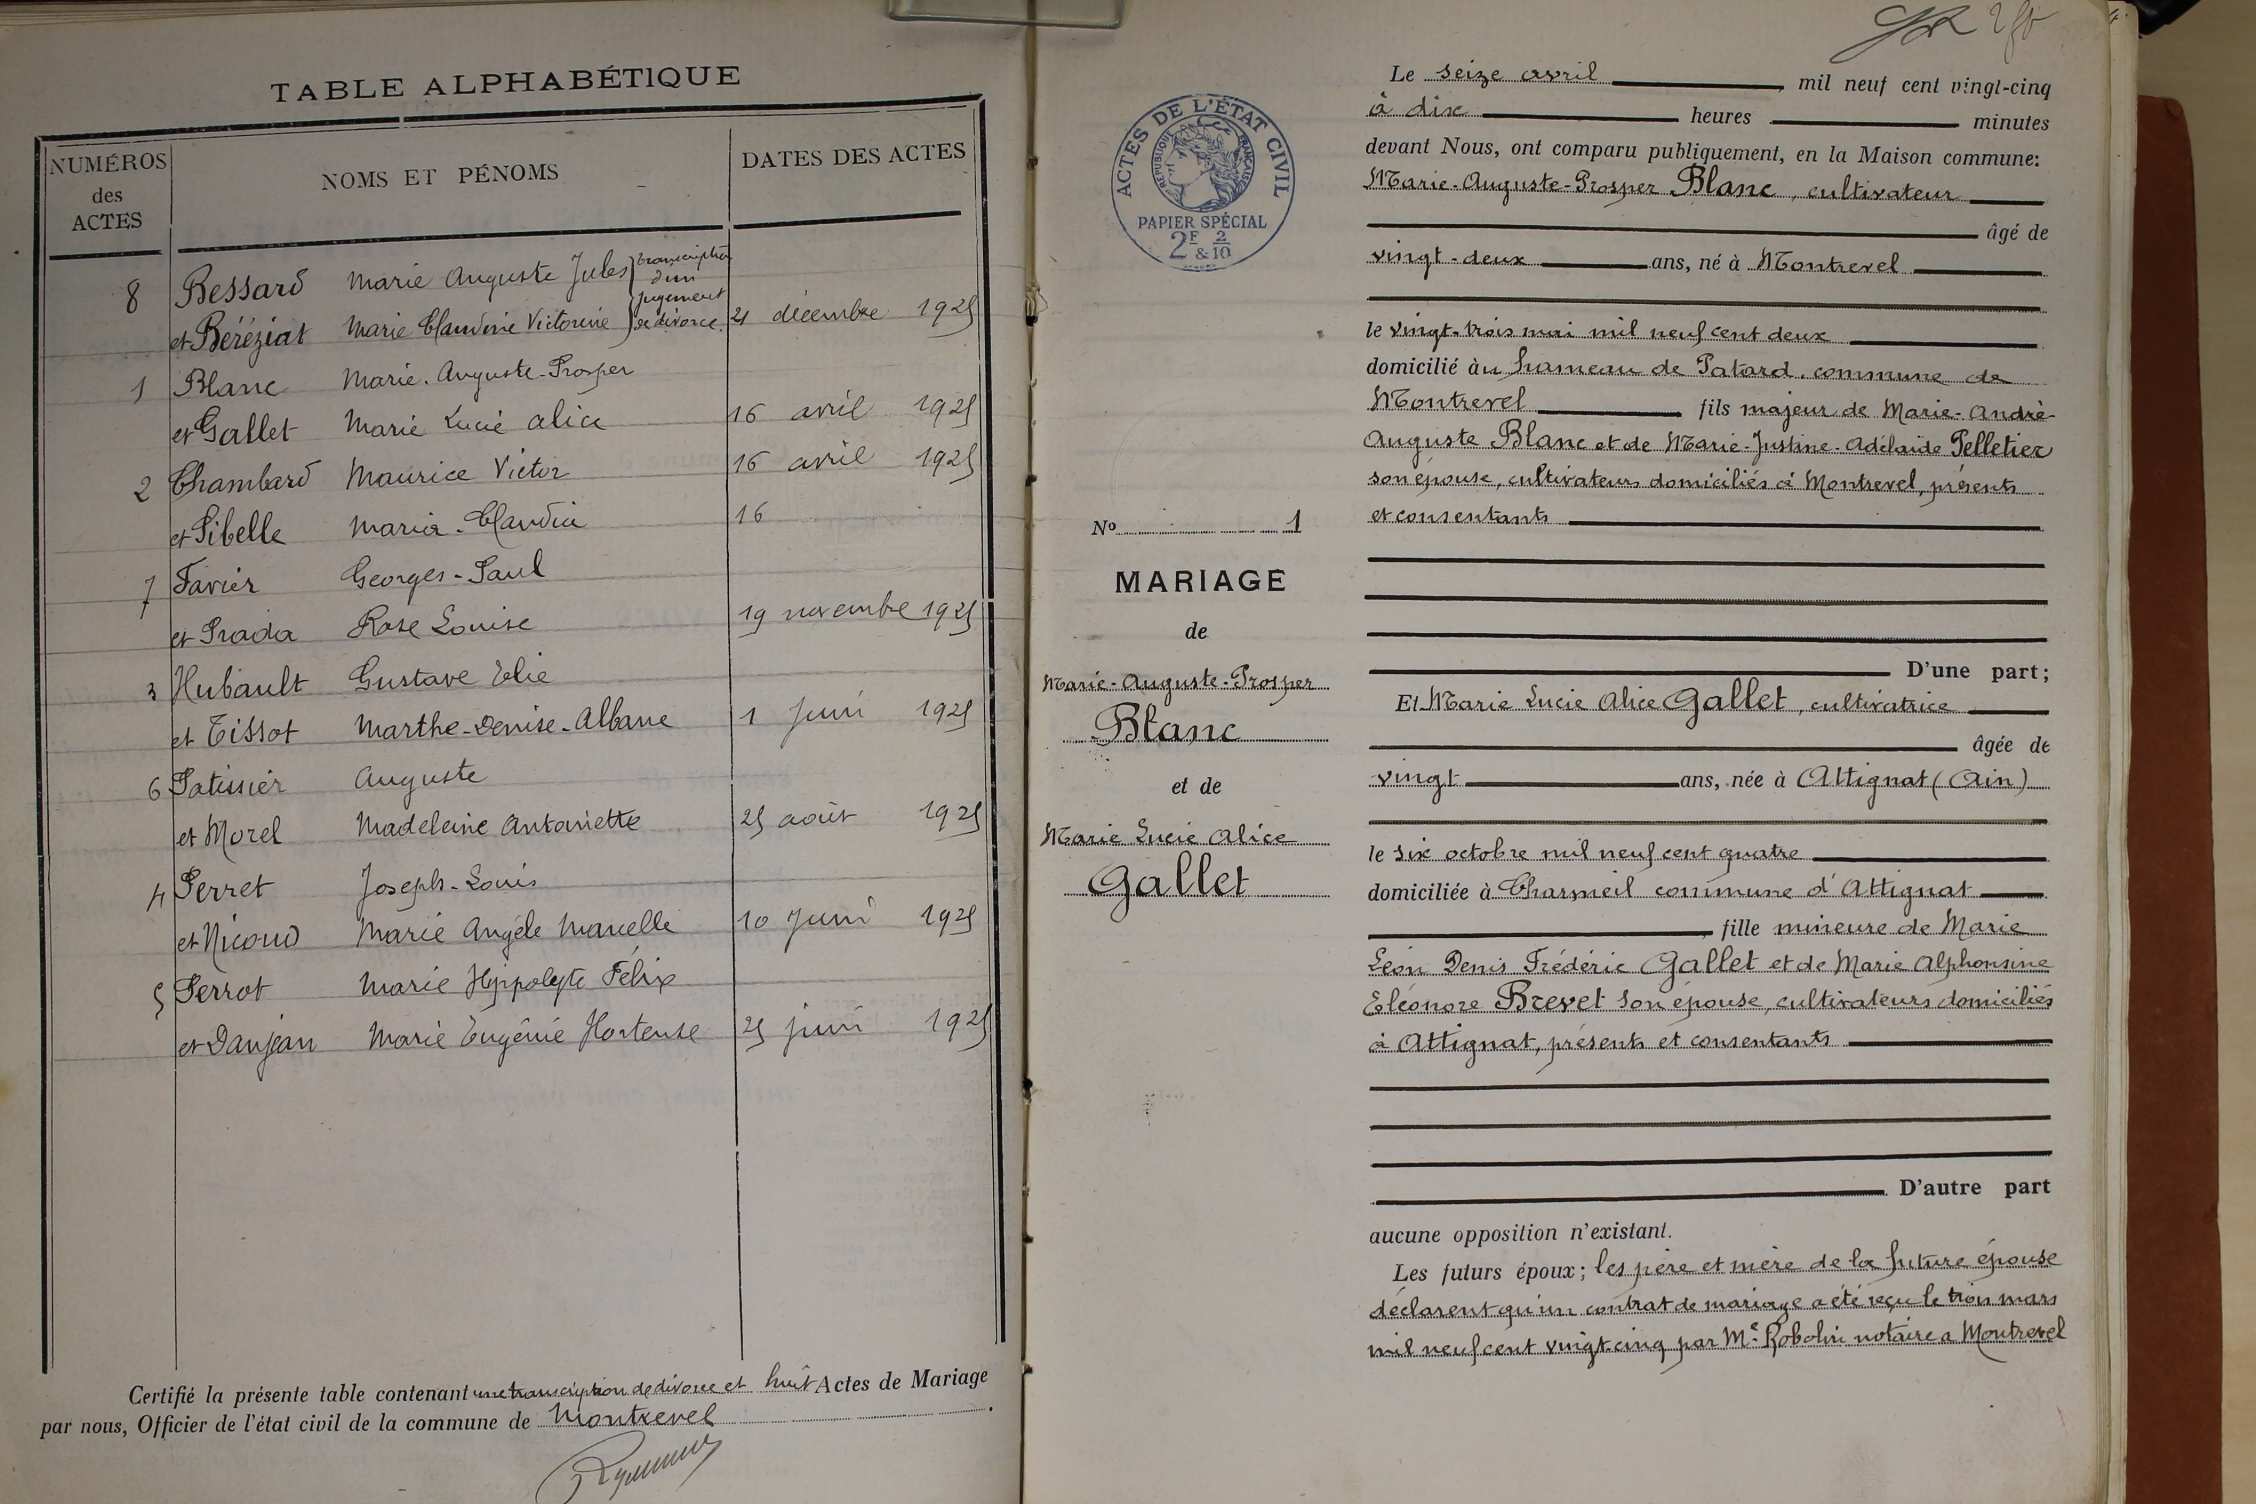 TABLE ALPHABÉTIQUE
NUMÉROS des ACTES
NOMS ET PÉNOMS
DATES DES ACTES
8 Bessard Marie Auguste Jules } transcription d'un
et Béréziat Marie Claudine Victorine } jugement de divorce. 21 décembre 1925
1 Blanc Marie-Auguste-Prosper
et Gallet Marie Lucie Alice 16 avril 1925
2 Chambard Maurice Victor 16 avril 1925
et Pibelle Maria-Claudia 16
7 Favier Georges-Paul
et Prada Rose Louise 19 novembre 1925
3 Hubault Gustave Elie
et Tissot Marthe-Denise-Albane 1 juin 1925
6 Patissier Auguste
et Morel Madeleine Antoinette 25 août 1925
4 Perret Joseph-Louis
et Nicoud Marie Angèle Marcelle 10 juin 1925
5 Perrot Marie Hyppolyte Félix
et Danjean Marie Eugénie Hortense 25 juin 1925
Certifié la présente table contenant une transcription de divorce et huit Actes de Mariage
par nous, Officier de l'état civil de la commune de Montrevel.
ACTES DE L'ÉTAT CIVIL
RÉPUBLIQUE FRANÇAISE
PAPIER SPÉCIAL
2F & 2/10
No 1
MARIAGE
de
Marie-Auguste-Prosper
Blanc
et de
Marie Lucie Alice
Gallet
Le seize avril mil neuf cent vingt-cinq
à dix heures minutes
devant Nous, ont comparu publiquement, en la Maison commune:
Marie-Auguste-Prosper Blanc, cultivateur
âgé de
vingt-deux ans, né à Montrevel
le vingt-trois mai mil neuf cent deux
domicilié àu hameau de Patard, commune de
Montrevel fils majeur de Marie-André-
Auguste Blanc et de Marie-Justine-Adélaïde Pelletier
son épouse, cultivateurs domiciliés à Montrevel, présents
et consentants
D'une part;
Et Marie Lucie Alice Gallet, cultivatrice
âgée de
vingt ans, née à Attignat (Ain)
le six octobre mil neuf cent quatre
domiciliée à Charmeil commune d'Attignat
fille mineure de Marie
Léon Denis Frédéric Gallet et de Marie Alphonsine
Eléonore Brevet son épouse, cultivateurs domiciliés
à Attignat, présents et consentants
D'autre part
aucune opposition n'existant.
Les futurs époux; les père et mère de la future épouse
déclarent qu'un contrat de mariage a été reçu le trois mars
mil neuf cent vingt-cinq par Me Robolin notaire a Montrevel